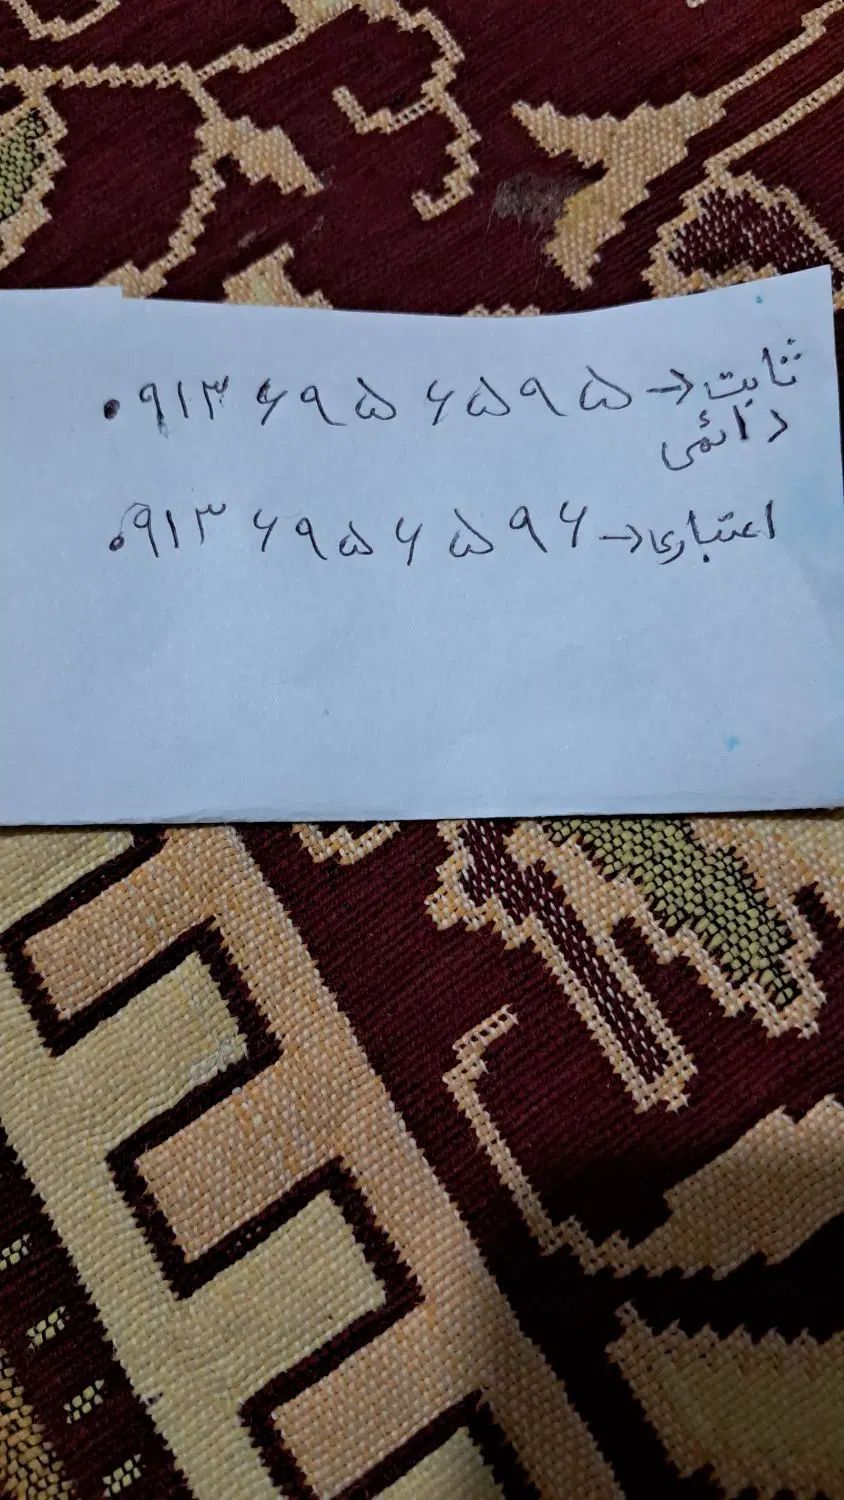 ثابت → ۰۹۱۳۶۹۵۶۵۹۵
دائمی
اعتباری → ۰۹۱۳۶۹۵۶۵۹۶